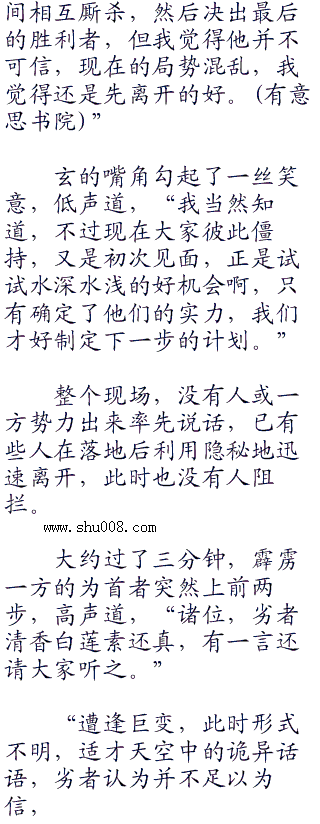 间相互厮杀，然后决出最后
的胜利者，但我觉得他并不
可信，现在的局势混乱，我
觉得还是先离开的好。(有意
思书院)”
玄的嘴角勾起了一丝笑
意，低声道，“我当然知
道，不过现在大家彼此僵
持，又是初次见面，正是试
试水深水浅的好机会啊，只
有确定了他们的实力，我们
才好制定下一步的计划。”
整个现场，没有人或一
方势力出来率先说话，已有
些人在落地后利用隐秘地迅
速离开，此时也没有人阻
拦。
www.shu008.com
大约过了三分钟，霹雳
一方的为首者突然上前两
步，高声道，“诸位，劣者
清香白莲素还真，有一言还
请大家听之。”
“遭逢巨变，此时形式
不明，适才天空中的诡异话
语，劣者认为并不足以为
信，